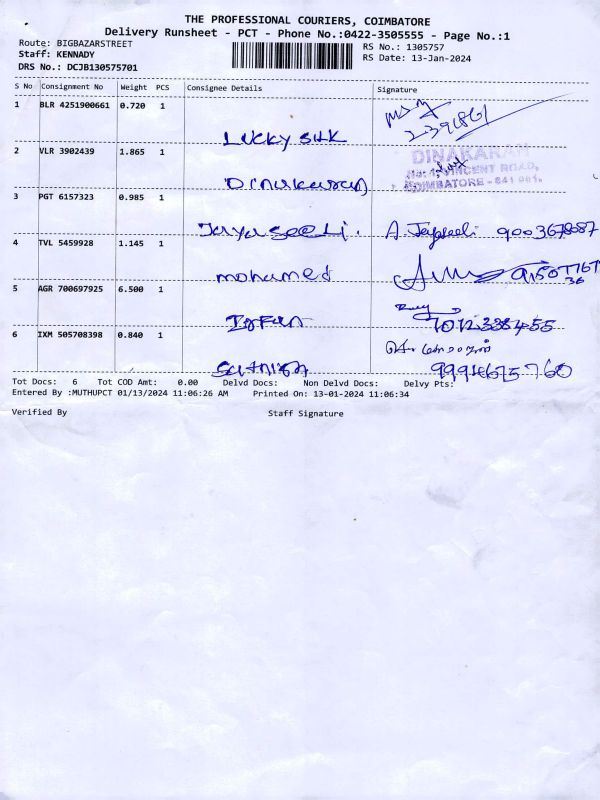 THE PROFESSIONAL COURIERS, COIMBATORE
Delivery Runsheet - PCT - Phone No.:0422-3505555 - Page No.:1
Route: BIGBAZARSTREET
RS No.: 1305757
Staff: KENNADY
RS Date: 13-Jan-2024
DRS No.: DCJB130575701
S No Consignment No Weight PCS Consignee Details Signature
1 BLR 4251900661 0.720 1
LUCKY SILK
2391861
2 VLR 3902439 1.865 1
DINAKARAN
VINCENT ROAD,
COIMBATORE - 641 001.
Dinakaran
3 PGT 6157323 0.985 1
Jayaseeli. A. Jayaseeli
4 TVL 5459928 1.145 1
mohamed
5 AGR 700697925 6.500 1
Irfan
6 IXM 505708398 0.840 1
Sathish
Tot Docs: 6 Tot COD Amt: 0.00 Delvd Docs: Non Delvd Docs: Delvy Pts:
Entered By :MUTHUPCT 01/13/2024 11:06:26 AM Printed On: 13-01-2024 11:06:34
Verified By Staff Signature